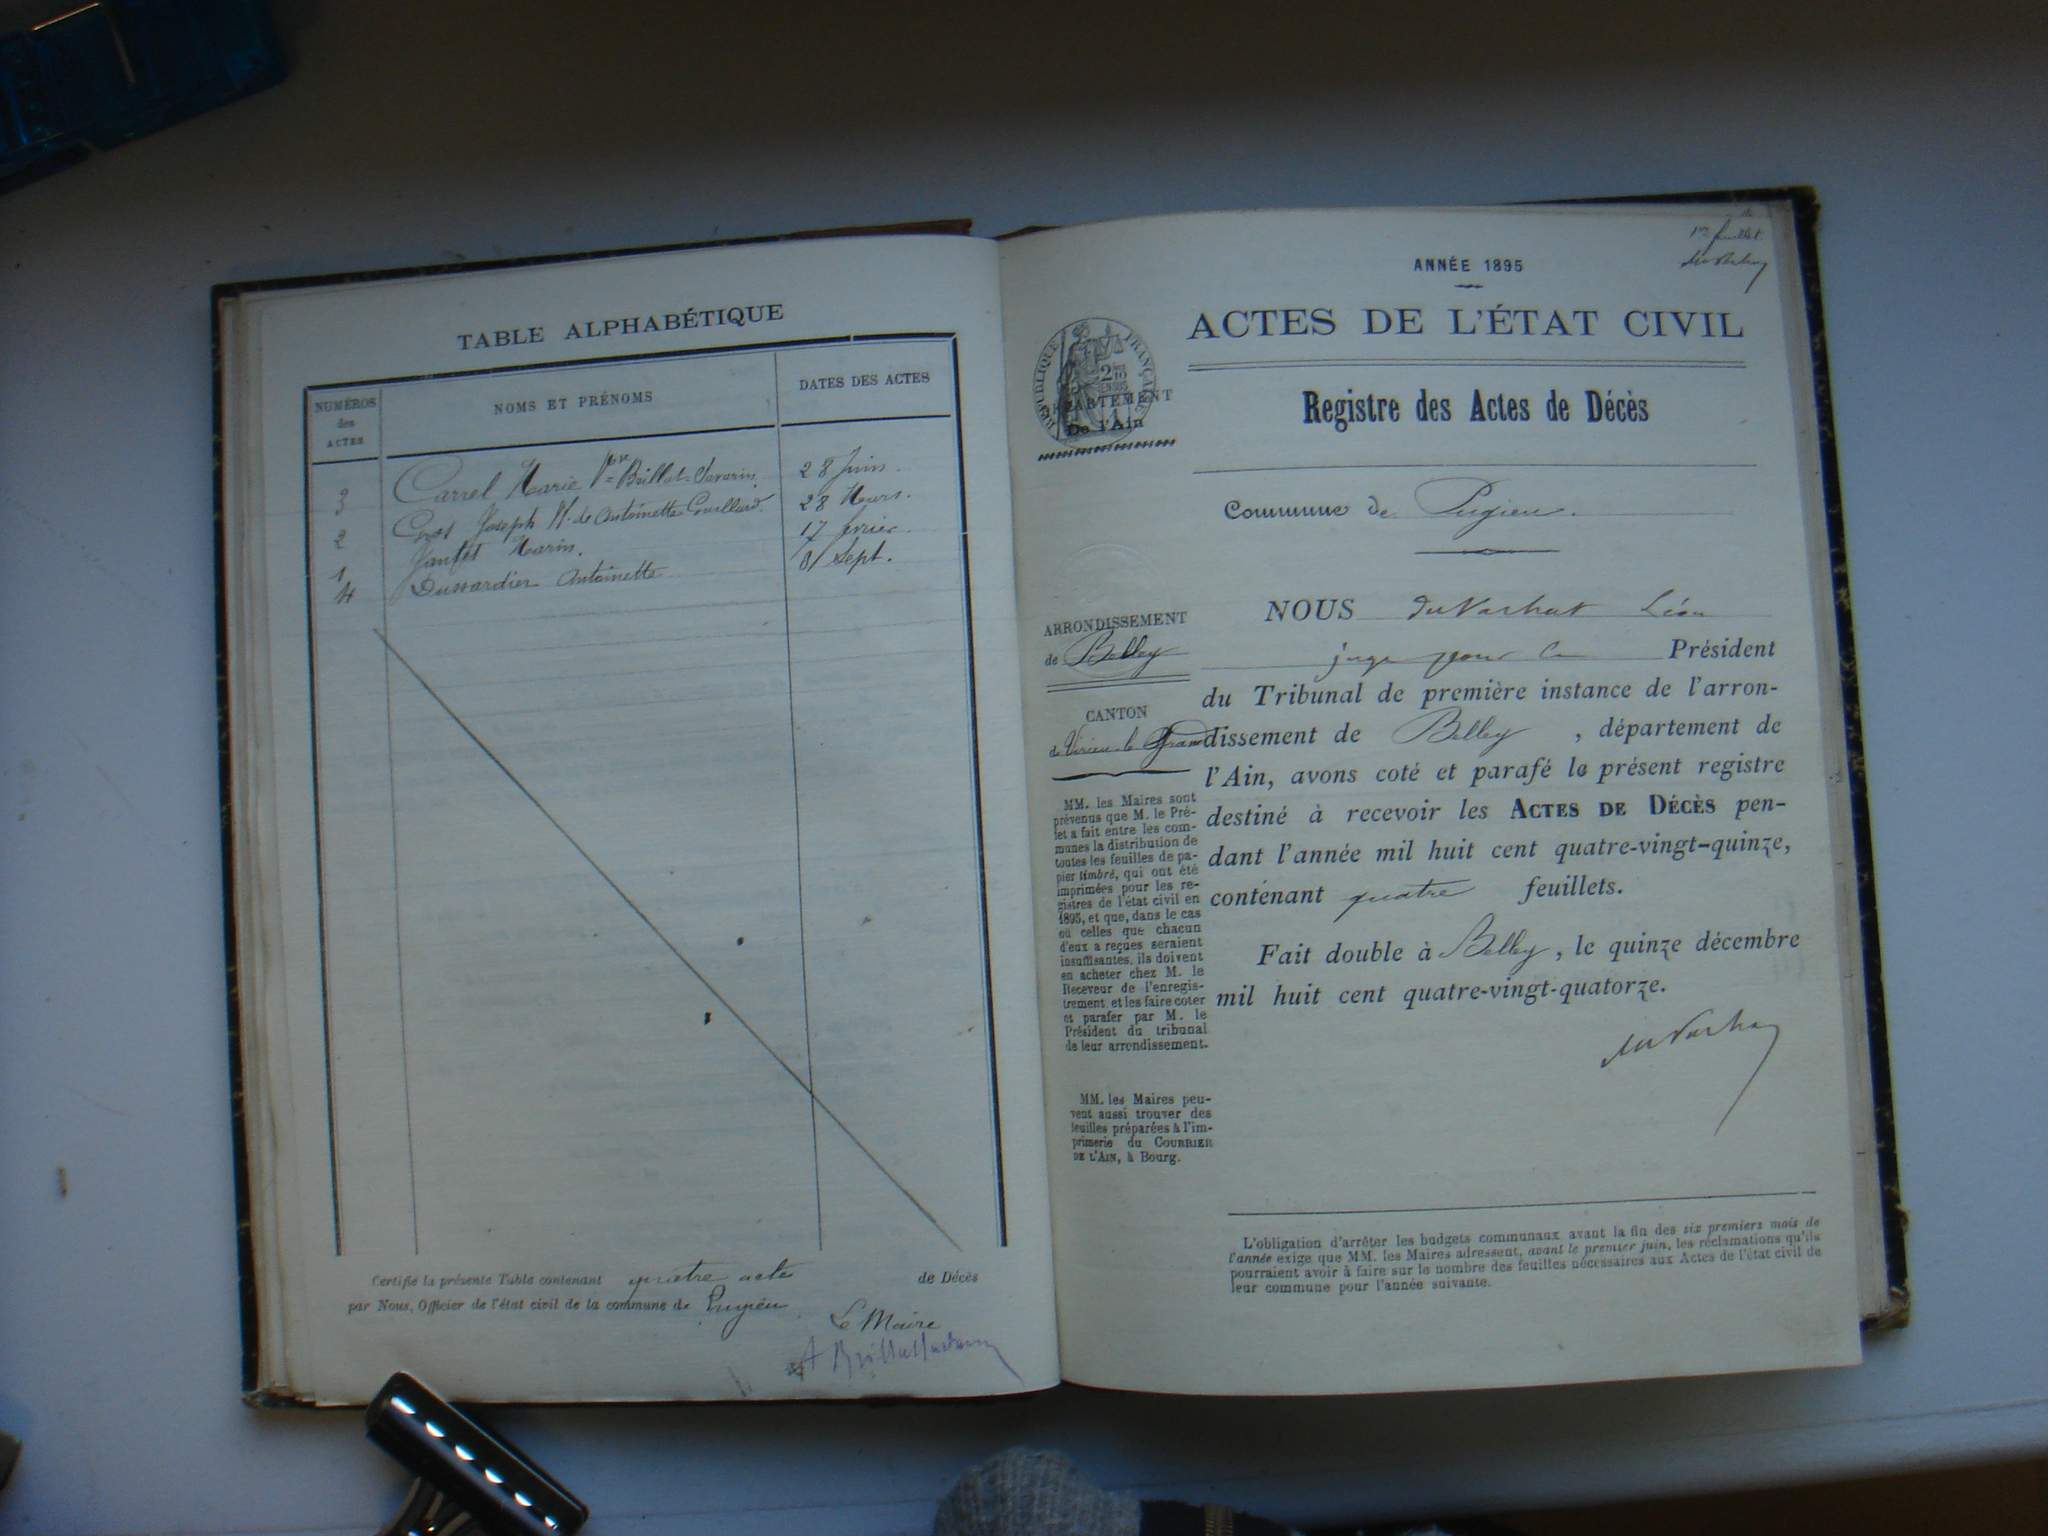 TABLE ALPHABÉTIQUE
NUMÉROS
des
ACTES
NOMS ET PRÉNOMS
DATES DES ACTES
3 Carrel Marie Vve Brillat-Savarin 28 Juin.
2 Joseph Vf. de Antoinette 28 Mars.
1 Marin. 17 fevrier.
4 Dussardier Antoinette 8 Sept.
Certifié la présente Table contenant quatre acte de Décès
par Nous, Officier de l'état civil de la commune de Pugieu
Le Maire
1er feuillet
ANNÉE 1895
ACTES DE L'ÉTAT CIVIL
RÉPUBLIQUE FRANÇAISE
DÉPARTEMENT
De l'Ain
Registre des Actes de Décès
Commune de Pugieu.
ARRONDISSEMENT
de Belley
CANTON
de Virieu-le-Grand
MM. les Maires sont
prévenus que M. le Pré-
fet a fait entre les com-
munes la distribution de
toutes les feuilles de pa-
pier timbré, qui ont été
imprimées pour les re-
gistres de l'état civil en
1895, et que, dans le cas
où celles que chacun
d'eux a reçues seraient
insuffisantes, ils doivent
en acheter chez M. le
Receveur de l'enregis-
trement et les faire coter
et parafer par M. le
Président du tribunal
de leur arrondissement.
MM. les Maires peu-
vent aussi trouver des
feuilles préparées à l'im-
primerie du COURRIER
DE L'AIN, à Bourg.
NOUS Léon
juge pour le Président
du Tribunal de première instance de l'arron-
dissement de Belley , département de
l'Ain, avons coté et parafé le présent registre
destiné à recevoir les ACTES DE DÉCÈS pen-
dant l'année mil huit cent quatre-vingt-quinze,
contenant quatre feuillets.
Fait double à Belley, le quinze décembre
mil huit cent quatre-vingt-quatorze.
L'obligation d'arrêter les budgets communaux avant la fin des six premiers mois de
l'année exige que MM. les Maires adressent, avant le premier juin, les réclamations qu'ils
pourraient avoir à faire sur le nombre des feuilles nécessaires aux Actes de l'état civil de
leur commune pour l'année suivante.